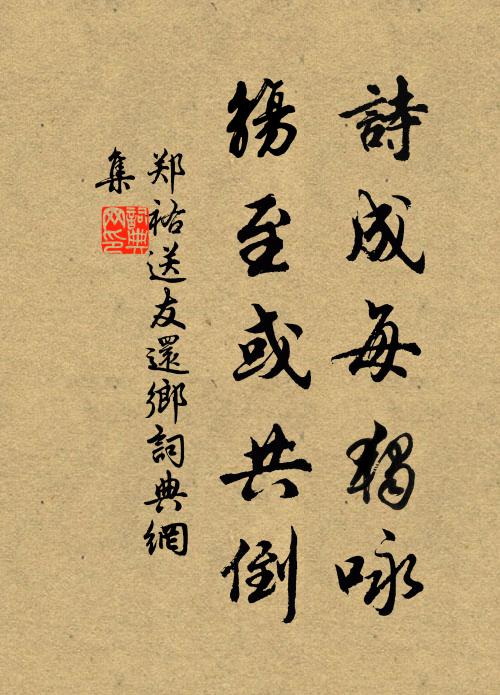 詩成每獨咏
觴至或共倒
郑祐送友還鄉詞典網
集
詞典
网印